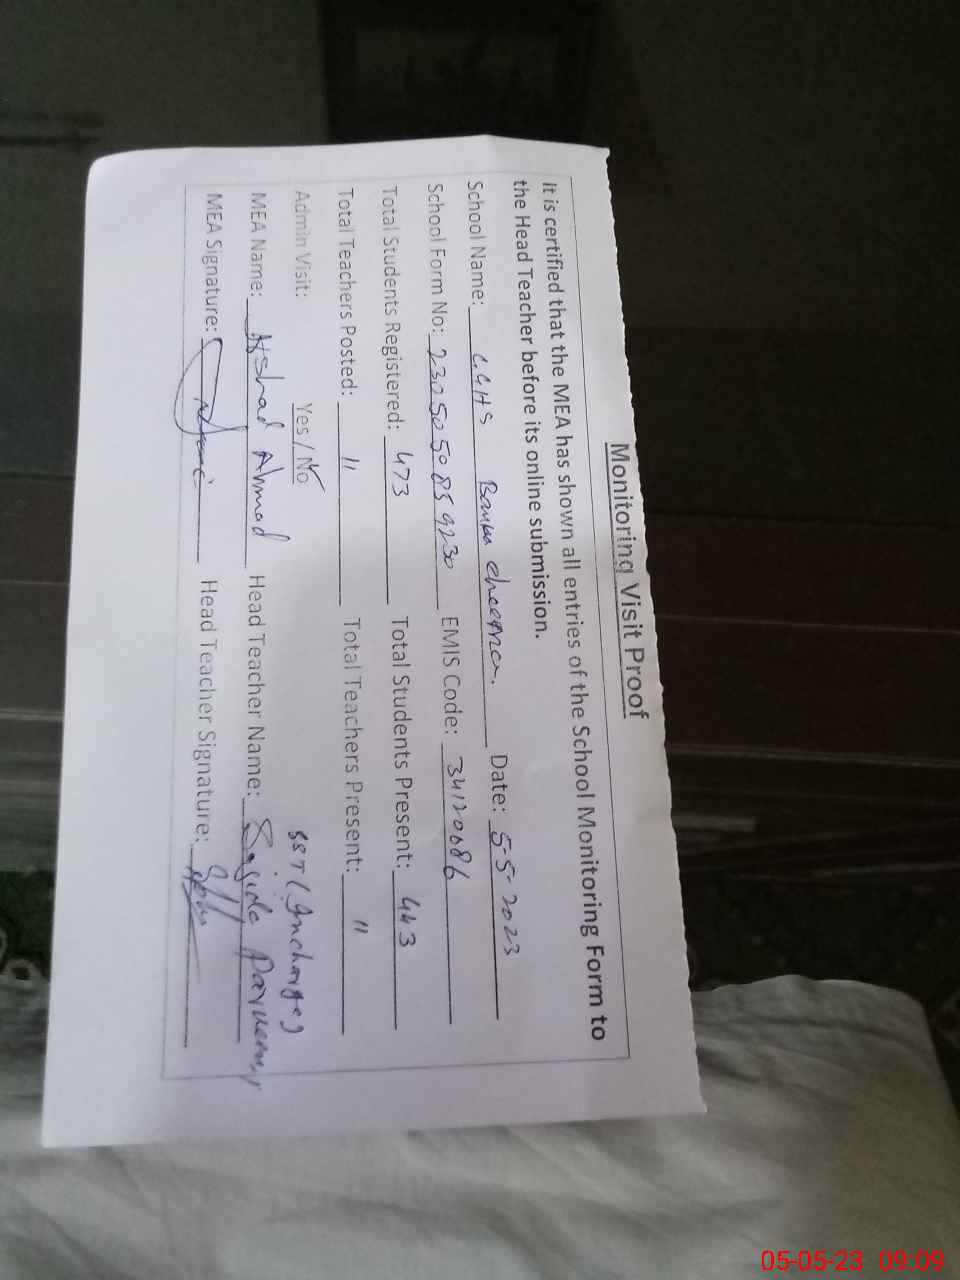 Monitoring Visit Proof
It is certified that the MEA has shown all entries of the School Monitoring Form to
the Head Teacher before its online submission.
School Name: GGHS Cheema. Date: 5-5-2023
School Form No: 2305050859230 EMIS Code: 34120686
Total Students Registered: 473 Total Students Present: 443
Total Teachers Posted: 11 Total Teachers Present: 11
Admin Visit: Yes / No
SST (Incharge)
MEA Name: Ahmad Head Teacher Name: Sajida Parveen
MEA Signature: Head Teacher Signature:
05-05-23 09:09